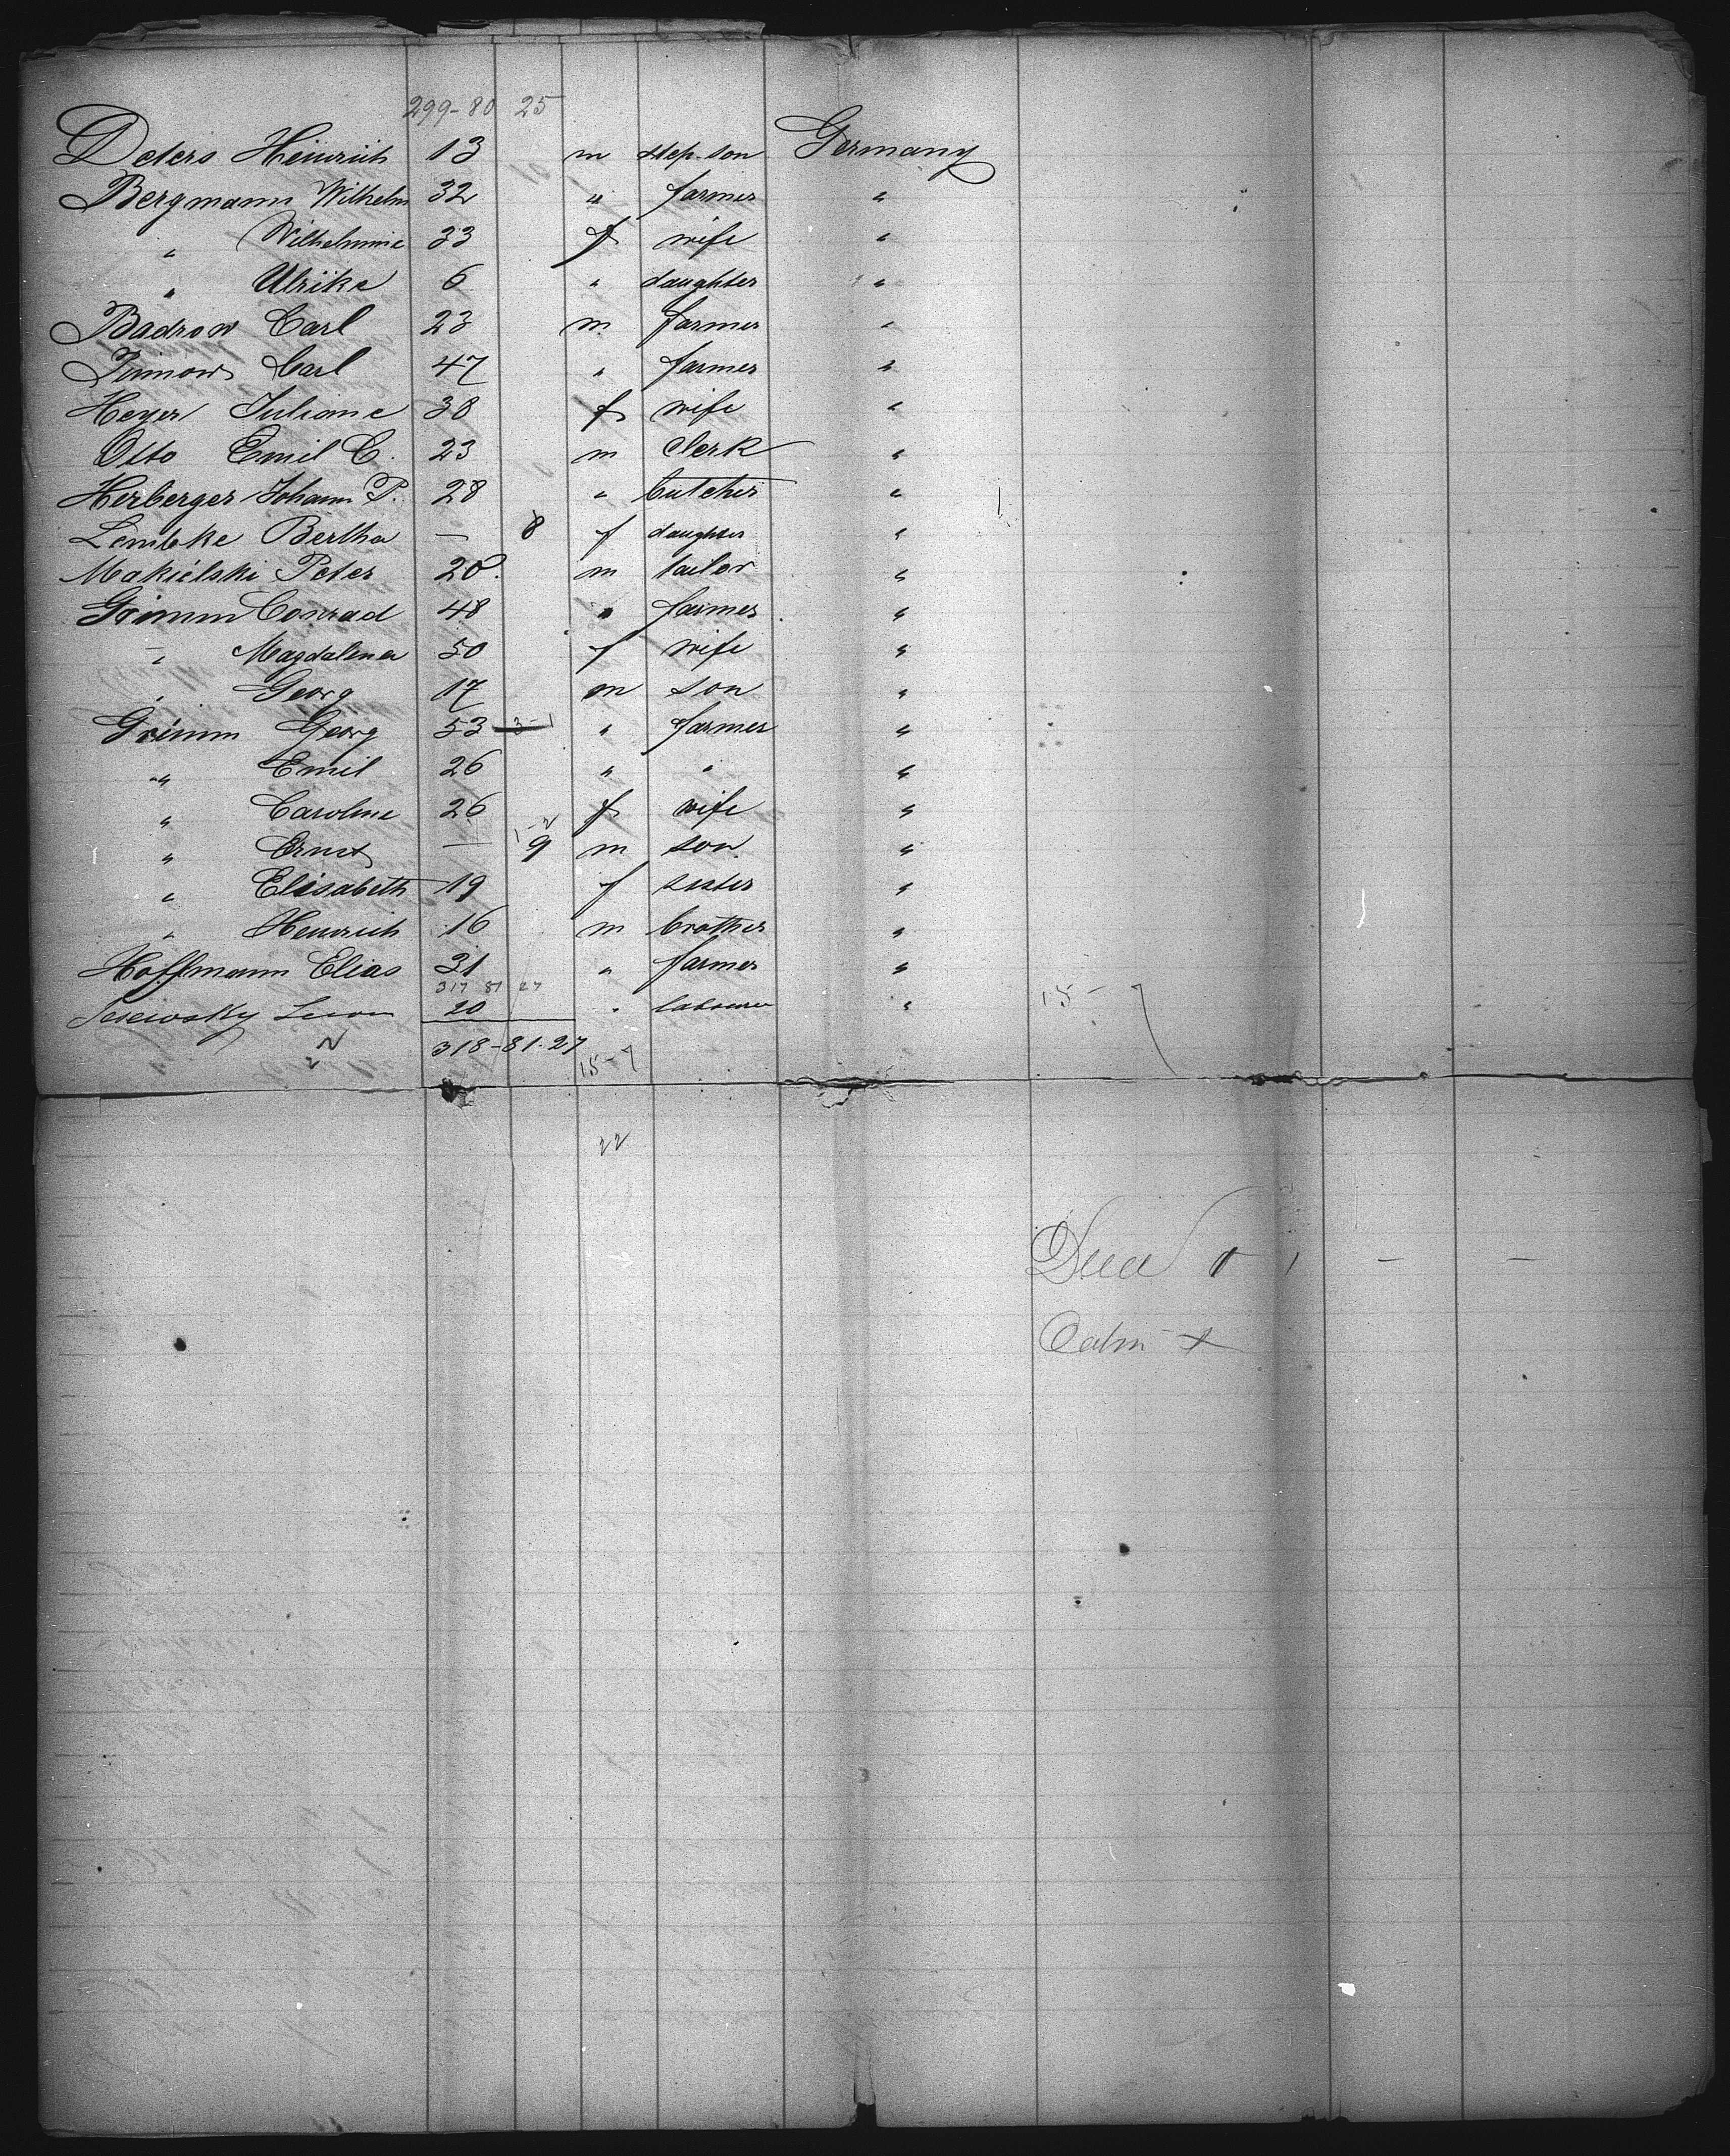 299-80 25
Deters Heinrich 13 m step-son Germany
Bergmann Wilhelm 32 " farmer "
" Wilhelmine 33 f wife "
" Ulrike 6 " daughter "
Badrow Carl 23 m farmer "
Carl 47 " farmer "
Heyer Juliane 38 f wife "
Otto Emil C. 23 m clerk "
Herberger Johann P. 28 " butcher "
Lembke Bertha — 8 f daughter "
Makielski Peter 28 m tailor "
Grimm Conrad 48 " farmer "
" Magdalena 50 f wife "
" Georg 17 m son "
Grimm Georg 53 3-1 " farmer "
" Emil 26 " " "
" Caroline 26 f wife "
" Ernst — 9 m son "
" Elisabeth 19 f sister "
" Heinrich 16 m brother "
Hoffmann Elias 31 " farmer "
317 81 27
20 " labourer " 15-7
318-81-27
15-7
22